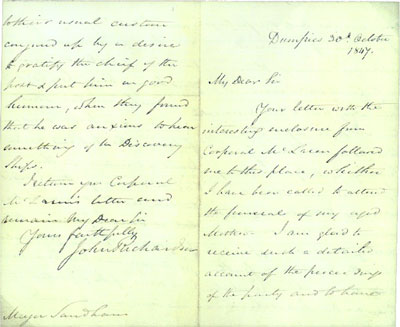 Dumfries 30th October
1847.
My Dear Sir
Your letter with the
interesting enclosure from
Corporal McLaren followed
me to this place, whither
I have been called to attend
the funeral of my aged
Mother. I am glad to
receive such a detailed
account of the proceedings
of the party and to have
to their usual custom
conjured up by a desire
to gratify the chief of the
post & put him in good
humour, when they found
that he was anxious to hear
something of the Discovery
Ships.
I return you Corporal
McLaren's letter and
remain My Dear Sir
Yours faithfully
John Richardson
Major Sandham